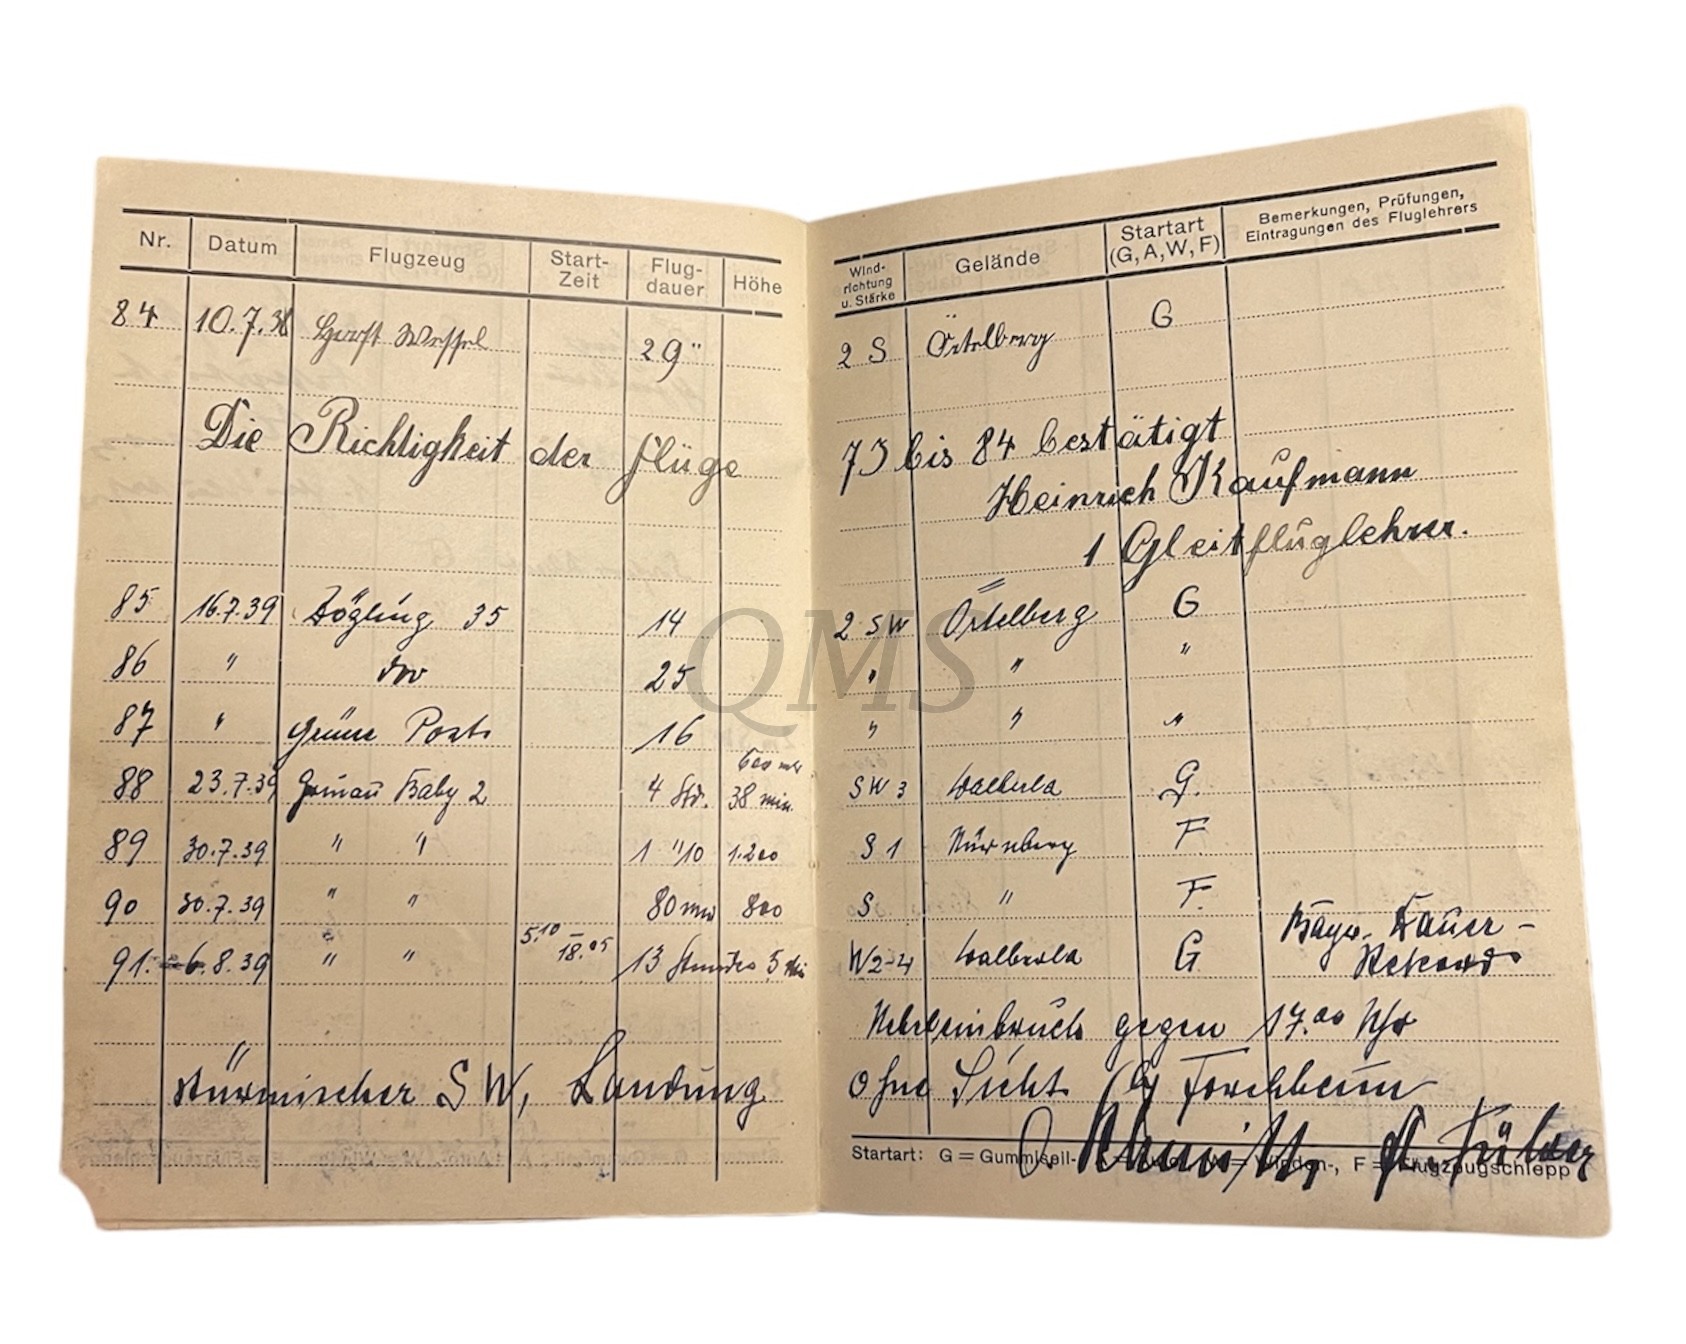 Nr. Datum Flugzeug Start-Zeit Flug-dauer Höhe Wind-richtung u. Stärke Gelände Startart (G, A, W, F) Bemerkungen, Prüfungen, Eintragungen des Fluglehrers
84 10.7.38 Horst Wessel 29" 2 S Örtelberg G
Die Richtigkeit der Flüge 73 bis 84 bestätigt
Heinrich Kaufmann
1 Gleitfluglehrer.
85 16.7.39 Zögling 35 14 2 SW Örtelberg G
86 " dto 25 " " "
87 " Grüne Post 16 " " "
88 23.7.39 Grunau Baby 2 4 Std. 38 min. 600 mtr SW 3 Walberla G.
89 30.7.39 " " 1 "10 1.200 S 1 Nürnberg F
90 30.7.39 " " 80 min 800 S " F.
91. 6.8.39 " " 5.10 – 18.05 13 Stunden 5 Min W2-4 Walberla G Bayr. Dauer-
Rekord
Nebeleinbruch gegen 17.00 Uhr
stürmischer SW, Landung ohne Sicht by Forchheim
Startart: G = Gummiseil-, W = Winden-, F = Flugzeugschlepp
QMS